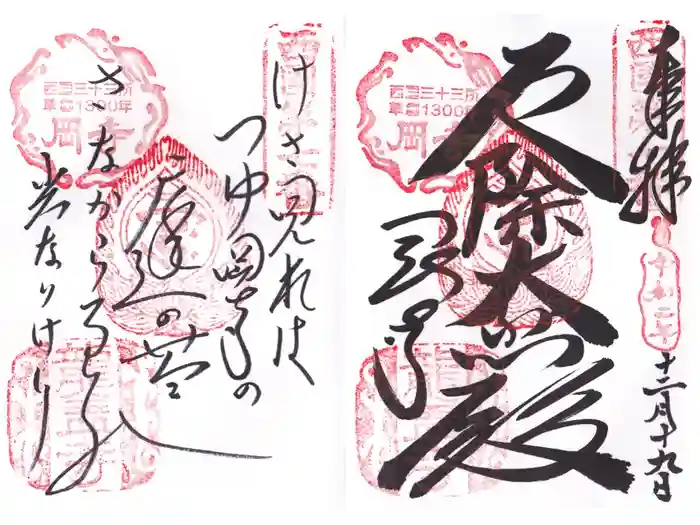 奉拝
厄除大悲殿
岡寺
令和二年
十二月十九日
西国三十三所
草創1300年
岡寺
けさ見れば
つゆ岡寺の
庭の苔
さながら瑠璃の
光なりけり
西国三十三所
草創1300年
岡寺